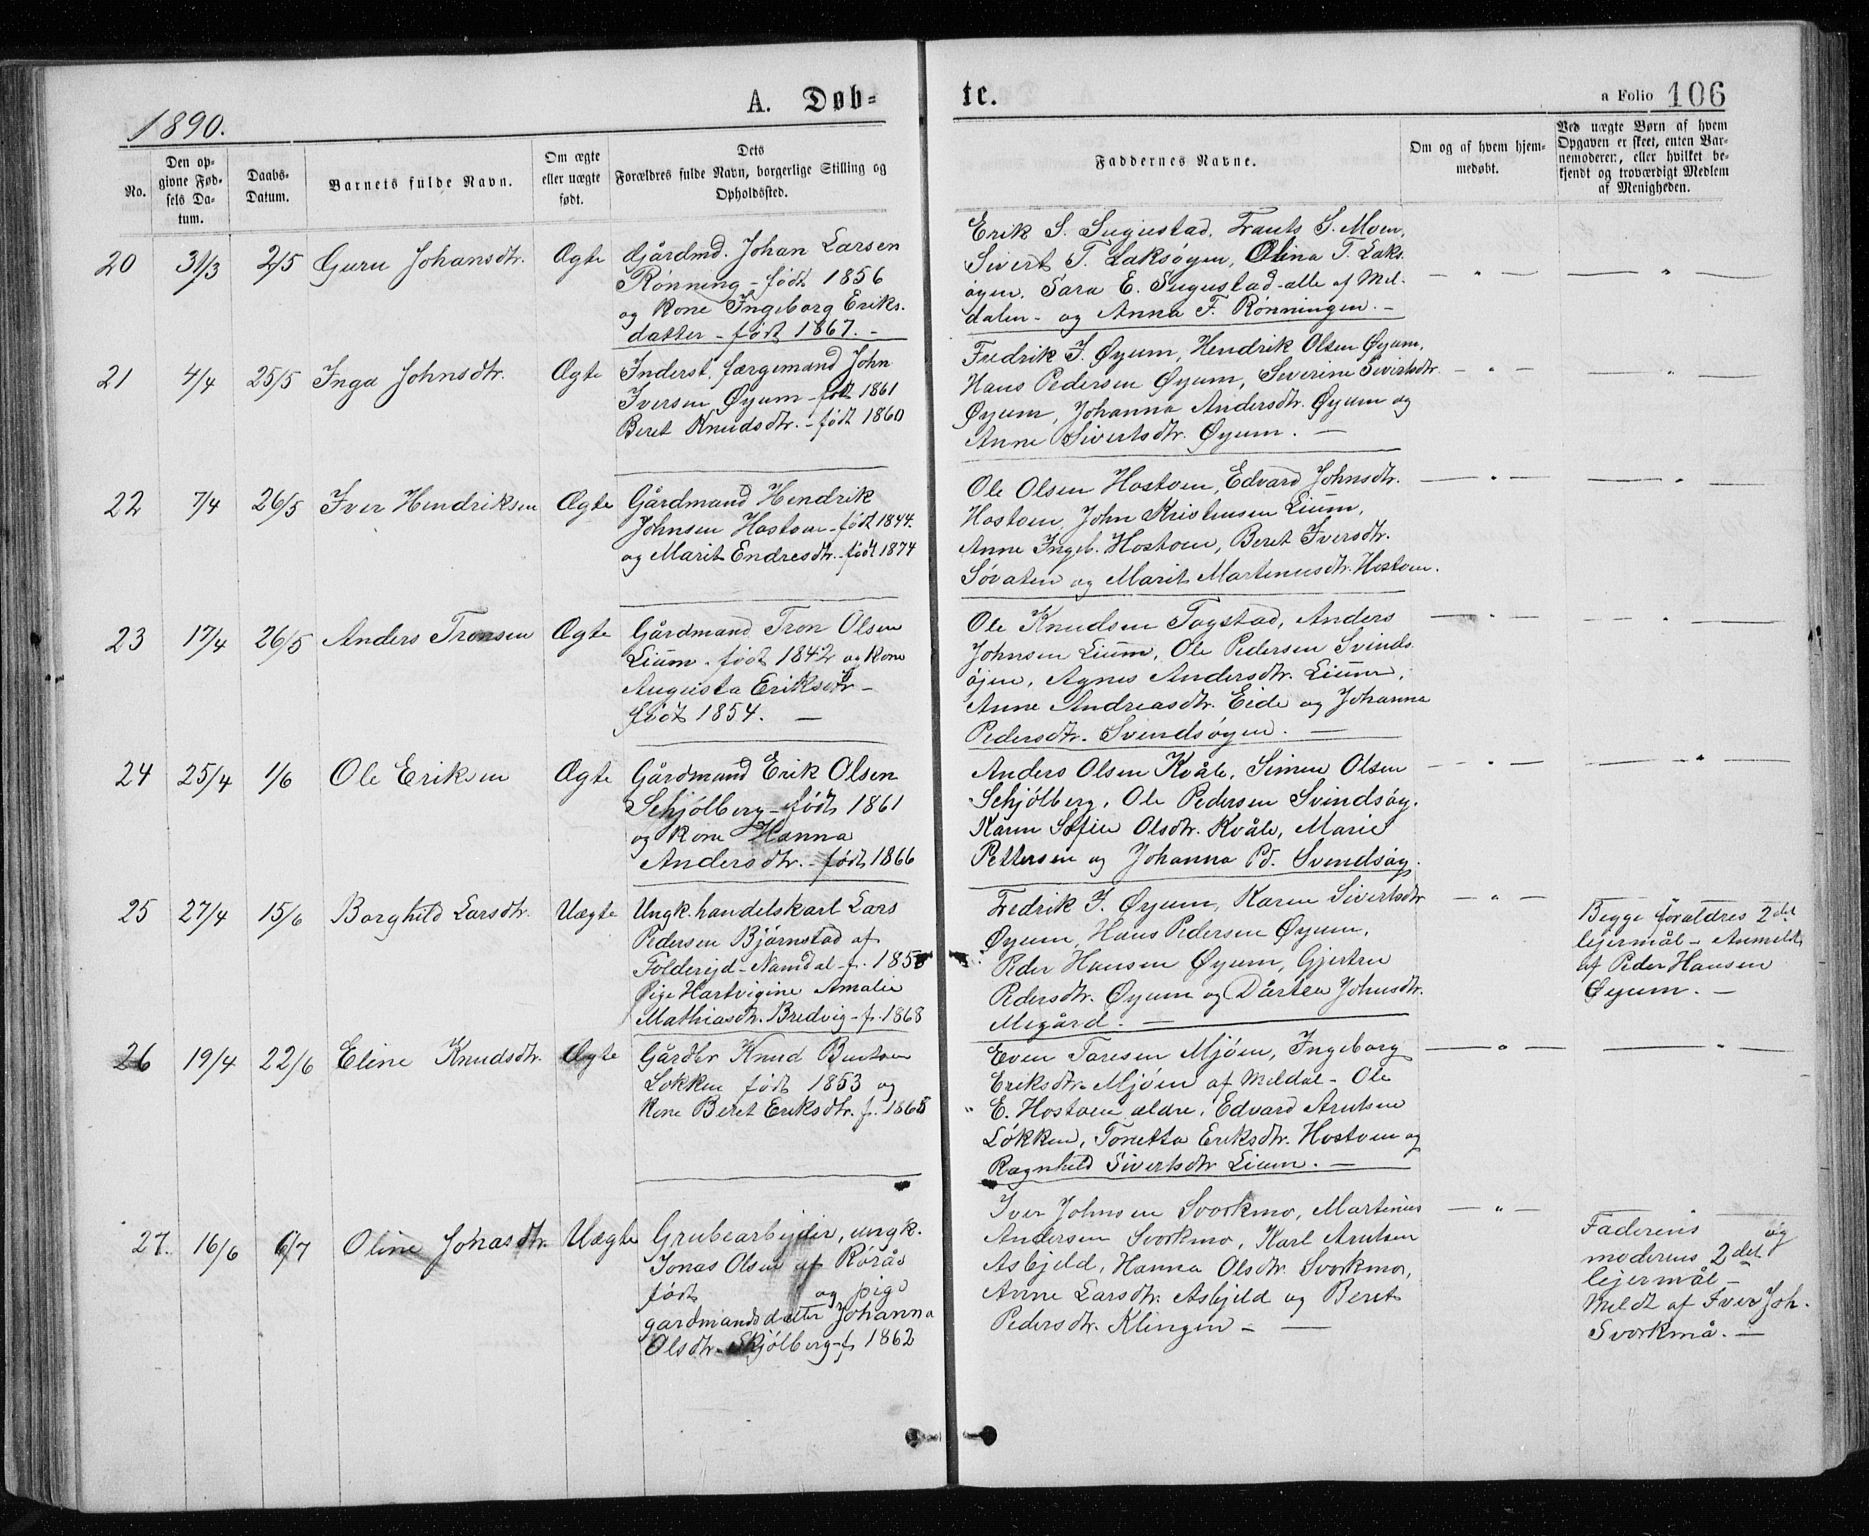 1890.
A. Døb-
te.
a Folio 106
No.
Den op-
givne Fød-
sels Da-
tum.
Daabs-
Datum.
Barnets fulde Navn.
Om ægte
eller uægte
født.
Dets
Forældres fulde Navn, borgerlige Stilling og
Opholdssted.
Faddernes Navne.
Om og af hvem hjem-
medøbt.
Ved uægte Børn af hvem
Opgaven er skeet, enten Bar-
nemoderen, eller hvilket be-
kjendt og troværdigt Medlem
af Menigheden.
20 31/3 2/5 Guru Johansdtr. Ægte
Gårdmd. Johan Larsen
Rønning - født 1856
og kone Ingeborg Eriks-
datter - født 1867. -
Erik S. Sugustad, Frants S. Moen,
Sivert T. Laksøyen, Olina T. Laks-
øyen, Sara E. Sugustad - alle af Mel-
dalen - og Anna F. Rønningen. -
— " — — " —
21 4/4 25/5 Inga Johnsdtr. Ægte
Inderst, færgemand John
Iversen Øyum - født 1861
Beret Knudsdtr. - født 1860
Fredrik J. Øyum, Hendrik Olsen Øyum,
Hans Pedersen Øyum, Severine Sivertsdtr.
Øyum, Johanna Andersdtr. Øyum og
Anne Sivertsdtr. Øyum. —
— " — — " —
22 7/4 26/5 Iver Hendriksen Ægte
Gårdmand Hendrik
Johnsen Hostoen - født 1844.
og Marit Endresdtr. - født 1874
Ole Olsen Hostoen, Edvard Johnsdtr.
Hostoen, John Kristensen Lium,
Anne Ingeb. Hostoen, Beret Iversdtr.
Søvaten og Marit Martinusdtr. Hostoen.
— " — — " —
23 17/4 26/5 Anders Tronsen Ægte
Gårdmand Tron Olsen
Lium - født 1842 og kone
Augusta Eriksdtr -
født 1854. —
Ole Knudsen Togstad, Anders
Johnsen Lium, Ole Pedersen Svinds-
øjen, Agnes Andersdtr. Lium,
Anne Andreasdtr. Eide og Johanna
Pedersdtr. Svendsøyen. —
— " — — " —
24 25/4 1/6 Ole Eriksen Ægte
Gårdmand Erik Olsen
Schjølberg - født 1861
og kone Hanna
Andersdtr. - født 1866
Anders Olsen Kvåle, Simen Olsen
Schjølberg, Ole Pedersen Svindsøy.
Karen Sofie Olsdtr. Kvåle, Marie
Pettersen og Johanna Pd. Svendsøy.
— " — — " —
25 27/4 15/6 Borghild Larsdtr. Uægte
Ungk. handelskarl Lars
Pedersen Bjørnstad af
Folderejd - Namdal - f. 1858
Pige Hartvigine Amalie
Mathiasdtr. Bredvig - f. 1868
Fredrik J. Øyum, Karen Sivertsdtr
Øyum, Hans Pedersen Øyum,
Peder Hansen Øyum, Gjertru
Pedersdtr. Øyum og Dårtea Johnsdtr.
Megård. —
— " —
Begge forældres 2det
lejermål - Anmeldt
af Peder Hansen
Øyum. —
26 19/4 22/6 Eline Knudsdtr. Ægte
Gårdbr Knud Bentsen
Løkken født 1853 og
kone Beret Eriksdtr. f. 1868
Even Toresen Mjøen, Ingeborg
Eriksdtr. Mjøen af Meldal - Ole
E. Hostoen ældre, Edvard Arntsen
Løkken, Tonetta Eriksdtr. Hostoen og
Ragnhild Sivertsdtr Lium. —
— " — — " —
27. 16/6 6/7 Oline Jonasdtr. Uægte
Grubearbejder, ungk.
Jonas Olsen af Rørås
født og pige
gardmandsdatter Johanna
Olsdtr. Skjølberg - f 1862
Iver Johnsen Svorkmo, Martinus
Andersen Svorkmo, Karl Arntsen
Asbjeld, Hanna Olsdtr. Svorkmo,
Anne Larsdtr. Asbjeld og Beret
Pedersdtr. Klingen - —
— " —
Faderens og
moderens 2det
lejermål -
Meldt af Iver Joh.
Svorkmå. —